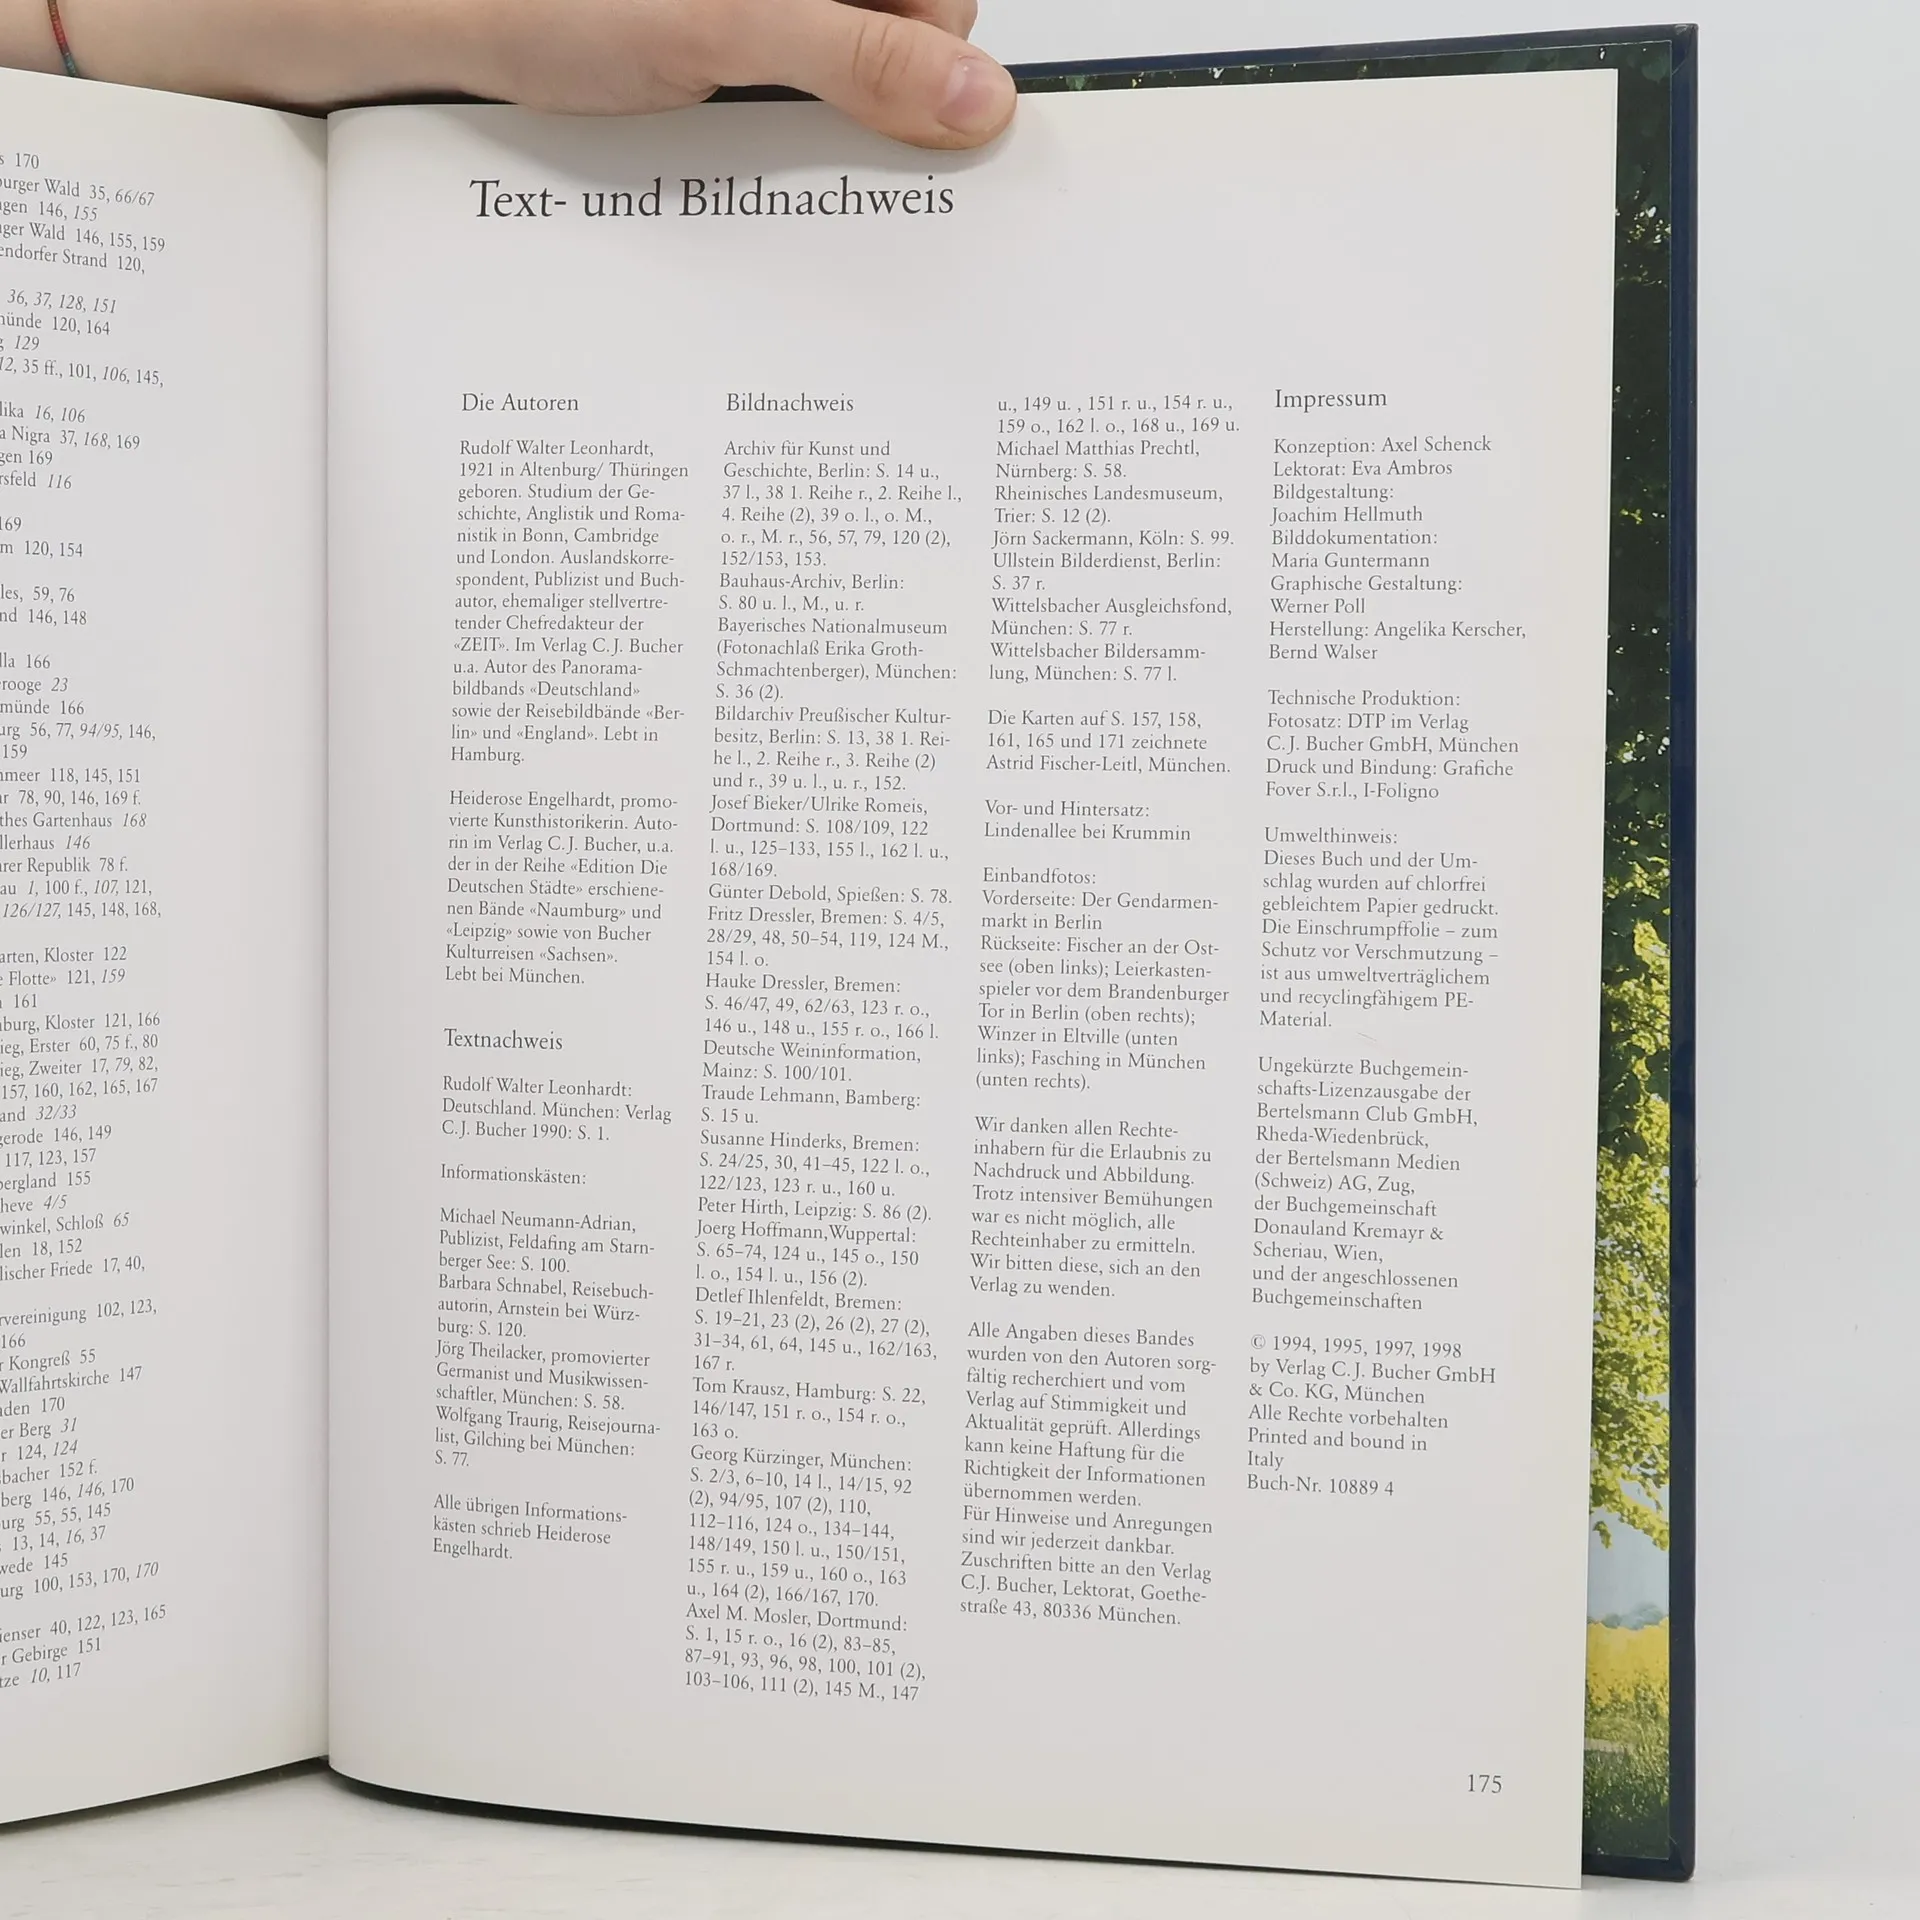 s 170
burger Wald 35, 66/67
gen 146, 155
ger Wald 146, 155, 159
endorfer Strand 120,
36, 37, 128, 151
münde 120, 164
129
12, 35 ff., 101, 106, 145,
lika 16, 106
a Nigra 37, 168, 169
gen 169
rsfeld 116
169
m 120, 154
les, 59, 76
nd 146, 148
lla 166
rooge 23
münde 166
urg 56, 77, 94/95, 146,
159
nmeer 118, 145, 151
r 78, 90, 146, 169 f.
thes Gartenhaus 168
llerhaus 146
arer Republik 78 f.
au 1, 100 f., 107, 121,
126/127, 145, 148, 168,
arten, Kloster 122
e Flotte» 121, 159
161
burg, Kloster 121, 166
ieg, Erster 60, 75 f., 80
ieg, Zweiter 17, 79, 82,
157, 160, 162, 165, 167
and 32/33
gerode 146, 149
117, 123, 157
bergland 155
heve 4/5
winkel, Schloß 65
len 18, 152
lischer Friede 17, 40,
rvereinigung 102, 123,
166
r Kongreß 55
Wallfahrtskirche 147
aden 170
er Berg 31
r 124, 124
sbacher 152 f.
berg 146, 146, 170
urg 55, 55, 145
13, 14, 16, 37
wede 145
urg 100, 153, 170, 170
ienser 40, 122, 123, 165
r Gebirge 151
tze 10, 117
Text- und Bildnachweis
Die Autoren
Rudolf Walter Leonhardt,
1921 in Altenburg/ Thüringen
geboren. Studium der Ge-
schichte, Anglistik und Roma-
nistik in Bonn, Cambridge
und London. Auslandskorre-
spondent, Publizist und Buch-
autor, ehemaliger stellvertre-
tender Chefredakteur der
«ZEIT». Im Verlag C.J. Bucher
u.a. Autor des Panorama-
bildbands «Deutschland»
sowie der Reisebildbände «Ber-
lin» und «England». Lebt in
Hamburg.
Heiderose Engelhardt, promo-
vierte Kunsthistorikerin. Auto-
rin im Verlag C.J. Bucher, u.a.
der in der Reihe «Edition Die
Deutschen Städte» erschiene-
nen Bände «Naumburg» und
«Leipzig» sowie von Bucher
Kulturreisen «Sachsen».
Lebt bei München.
Textnachweis
Rudolf Walter Leonhardt:
Deutschland. München: Verlag
C.J. Bucher 1990: S. 1.
Informationskästen:
Michael Neumann-Adrian,
Publizist, Feldafing am Starn-
berger See: S. 100.
Barbara Schnabel, Reisebuch-
autorin, Arnstein bei Würz-
burg: S. 120.
Jörg Theilacker, promovierter
Germanist und Musikwissen-
schaftler, München: S. 58.
Wolfgang Traurig, Reisejourna-
list, Gilching bei München:
S. 77.
Alle übrigen Informations-
kästen schrieb Heiderose
Engelhardt.
Bildnachweis
Archiv für Kunst und
Geschichte, Berlin: S. 14 u.,
37 l., 38 1. Reihe r., 2. Reihe l.,
4. Reihe (2), 39 o. l., o. M.,
o. r., M. r., 56, 57, 79, 120 (2),
152/153, 153.
Bauhaus-Archiv, Berlin:
S. 80 u. l., M., u. r.
Bayerisches Nationalmuseum
(Fotonachlaß Erika Groth-
Schmachtenberger), München:
S. 36 (2).
Bildarchiv Preußischer Kultur-
besitz, Berlin: S. 13, 38 1. Rei-
he l., 2. Reihe r., 3. Reihe (2)
und r., 39 u. l., u. r., 152.
Josef Bieker/Ulrike Romeis,
Dortmund: S. 108/109, 122
l. u., 125–133, 155 l., 162 l. u.,
168/169.
Günter Debold, Spießen: S. 78.
Fritz Dressler, Bremen: S. 4/5,
28/29, 48, 50–54, 119, 124 M.,
154 l. o.
Hauke Dressler, Bremen:
S. 46/47, 49, 62/63, 123 r. o.,
146 u., 148 u., 155 r. o., 166 l.
Deutsche Weininformation,
Mainz: S. 100/101.
Traude Lehmann, Bamberg:
S. 15 u.
Susanne Hinderks, Bremen:
S. 24/25, 30, 41–45, 122 l. o.,
122/123, 123 r. u., 160 u.
Peter Hirth, Leipzig: S. 86 (2).
Joerg Hoffmann,Wuppertal:
S. 65–74, 124 u., 145 o., 150
l. o., 154 l. u., 156 (2).
Detlef Ihlenfeldt, Bremen:
S. 19–21, 23 (2), 26 (2), 27 (2),
31–34, 61, 64, 145 u., 162/163,
167 r.
Tom Krausz, Hamburg: S. 22,
146/147, 151 r. o., 154 r. o.,
163 o.
Georg Kürzinger, München:
S. 2/3, 6–10, 14 l., 14/15, 92
(2), 94/95, 107 (2), 110,
112–116, 124 o., 134–144,
148/149, 150 l. u., 150/151,
155 r. u., 159 u., 160 o., 163
u., 164 (2), 166/167, 170.
Axel M. Mosler, Dortmund:
S. 1, 15 r. o., 16 (2), 83–85,
87–91, 93, 96, 98, 100, 101 (2),
103–106, 111 (2), 145 M., 147
u., 149 u. , 151 r. u., 154 r. u.,
159 o., 162 l. o., 168 u., 169 u.
Michael Matthias Prechtl,
Nürnberg: S. 58.
Rheinisches Landesmuseum,
Trier: S. 12 (2).
Jörn Sackermann, Köln: S. 99.
Ullstein Bilderdienst, Berlin:
S. 37 r.
Wittelsbacher Ausgleichsfond,
München: S. 77 r.
Wittelsbacher Bildersamm-
lung, München: S. 77 l.
Die Karten auf S. 157, 158,
161, 165 und 171 zeichnete
Astrid Fischer-Leitl, München.
Vor- und Hintersatz:
Lindenallee bei Krummin
Einbandfotos:
Vorderseite: Der Gendarmen-
markt in Berlin
Rückseite: Fischer an der Ost-
see (oben links); Leierkasten-
spieler vor dem Brandenburger
Tor in Berlin (oben rechts);
Winzer in Eltville (unten
links); Fasching in München
(unten rechts).
Wir danken allen Rechte-
inhabern für die Erlaubnis zu
Nachdruck und Abbildung.
Trotz intensiver Bemühungen
war es nicht möglich, alle
Rechteinhaber zu ermitteln.
Wir bitten diese, sich an den
Verlag zu wenden.
Alle Angaben dieses Bandes
wurden von den Autoren sorg-
fältig recherchiert und vom
Verlag auf Stimmigkeit und
Aktualität geprüft. Allerdings
kann keine Haftung für die
Richtigkeit der Informationen
übernommen werden.
Für Hinweise und Anregungen
sind wir jederzeit dankbar.
Zuschriften bitte an den Verlag
C.J. Bucher, Lektorat, Goethe-
straße 43, 80336 München.
Impressum
Konzeption: Axel Schenck
Lektorat: Eva Ambros
Bildgestaltung:
Joachim Hellmuth
Bilddokumentation:
Maria Guntermann
Graphische Gestaltung:
Werner Poll
Herstellung: Angelika Kerscher,
Bernd Walser
Technische Produktion:
Fotosatz: DTP im Verlag
C.J. Bucher GmbH, München
Druck und Bindung: Grafiche
Fover S.r.l., I-Foligno
Umwelthinweis:
Dieses Buch und der Um-
schlag wurden auf chlorfrei
gebleichtem Papier gedruckt.
Die Einschrumpffolie – zum
Schutz vor Verschmutzung –
ist aus umweltverträglichem
und recyclingfähigem PE-
Material.
Ungekürzte Buchgemein-
schafts-Lizenzausgabe der
Bertelsmann Club GmbH,
Rheda-Wiedenbrück,
der Bertelsmann Medien
(Schweiz) AG, Zug,
der Buchgemeinschaft
Donauland Kremayr &
Scheriau, Wien,
und der angeschlossenen
Buchgemeinschaften
© 1994, 1995, 1997, 1998
by Verlag C.J. Bucher GmbH
& Co. KG, München
Alle Rechte vorbehalten
Printed and bound in
Italy
Buch-Nr. 10889 4
175